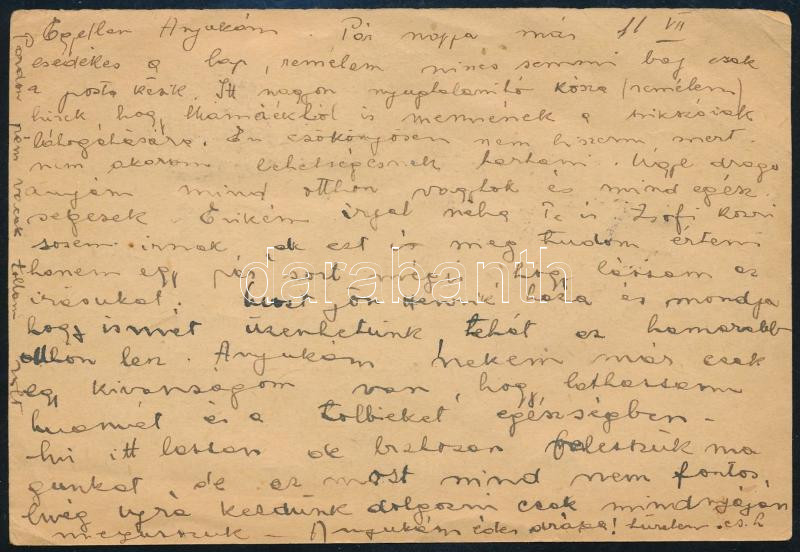 Egyetlen Anyukám. Pár napja már 11 VII
esedékes a lap, remélem nincs semmi baj csak
a posta késik. Itt nagyon nyugtalanító kósza (remélem)
hírek, hogy is mennének a
látogatására. Én csökönyösen nem hiszem mert
nem akarom lehetségesnek tartani. Ugye drága
anyám mind otthon vagytok és mind egész
ségesek. Erikém írjál néha Te is Zsófi
sosem írnak de ezt is meg tudom érteni
hanem egy pár sort mégis hogy lássam az
írásukat. Most jön haza és mondja
hogy ismét üzenhetünk tehát ez hamarabb
otthon lesz. Anyukám nekem már csak
egy kívánságom van, hogy láthassam
és a többieket egészségben -
Mi itt lassan de biztosan
gunkat de az most mind nem fontos,
még újra kezdünk dolgozni csak mindnyáján
megússzuk - Anyukám édes drága! türelem. cs. L
Pardon nem vacak tollam
darabanth